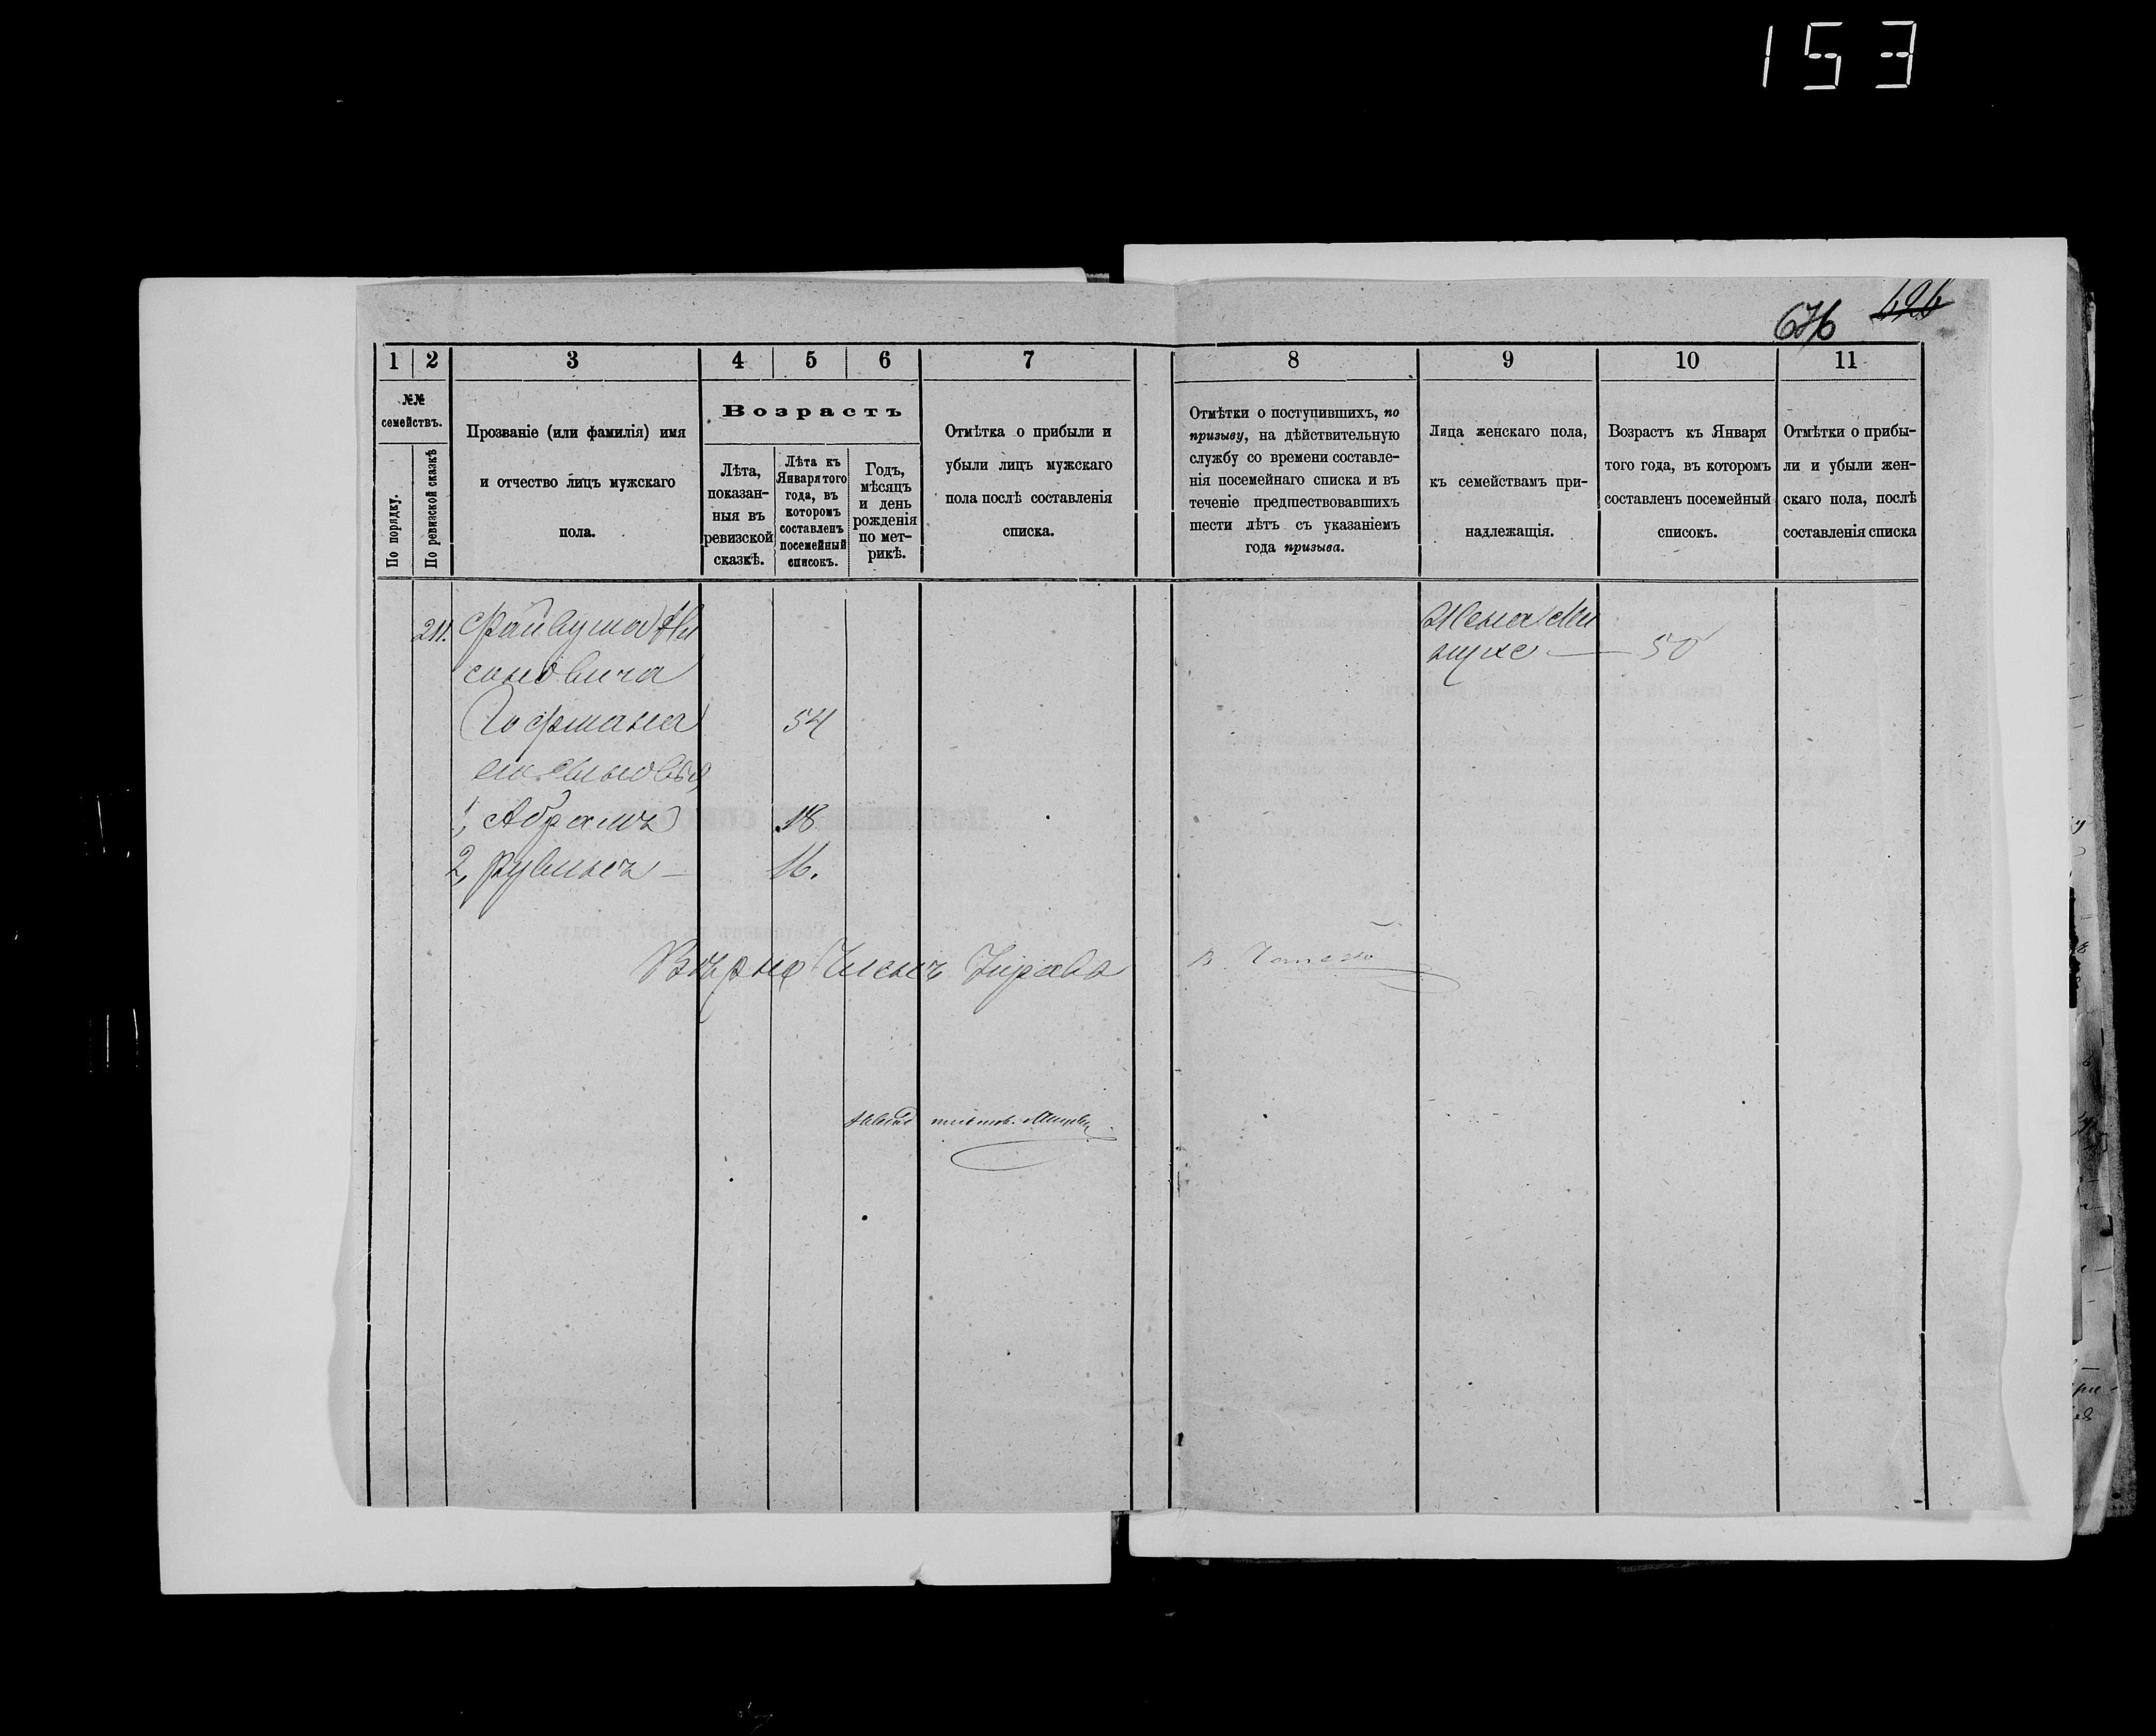 153
676 626
1 2 3 4 5 6 7 8 9 10 11
№№ семействъ.
По порядку.
По ревизской сказкѣ
Прозваніе (или фамилія) имя
и отчество лицъ мужскаго
пола.
Возрастъ
Лѣта,
показан-
ныя въ
ревизской
сказкѣ.
Лѣта къ
Января того
года, въ
которомъ
составленъ
посемейный
списокъ.
Годъ,
мѣсяцъ
и день
рожденія
по мет-
рикѣ.
Отмѣтка о прибыли и
убыли лицъ мужскаго
пола послѣ составленія
списка.
Отмѣтки о поступившихъ, по
призыву, на дѣйствительную
службу со времени составле-
нія посемейнаго списка и въ
теченіе предшествовавшихъ
шести лѣтъ съ указаніемъ
года призыва.
Лица женскаго пола,
къ семействамъ при-
надлежащія.
Возрастъ къ Января
того года, въ которомъ
составленъ посемейный
списокъ.
Отмѣтки о прибы-
ли и убыли жен-
скаго пола, послѣ
составленія списка
211. Файвуша Ни
сановича
Гофмана 54
его сыновья
1, Абрамъ 18
2, Рувинъ — 16.
Жена Ми
нухе — 50
Вѣрно Членъ Управы